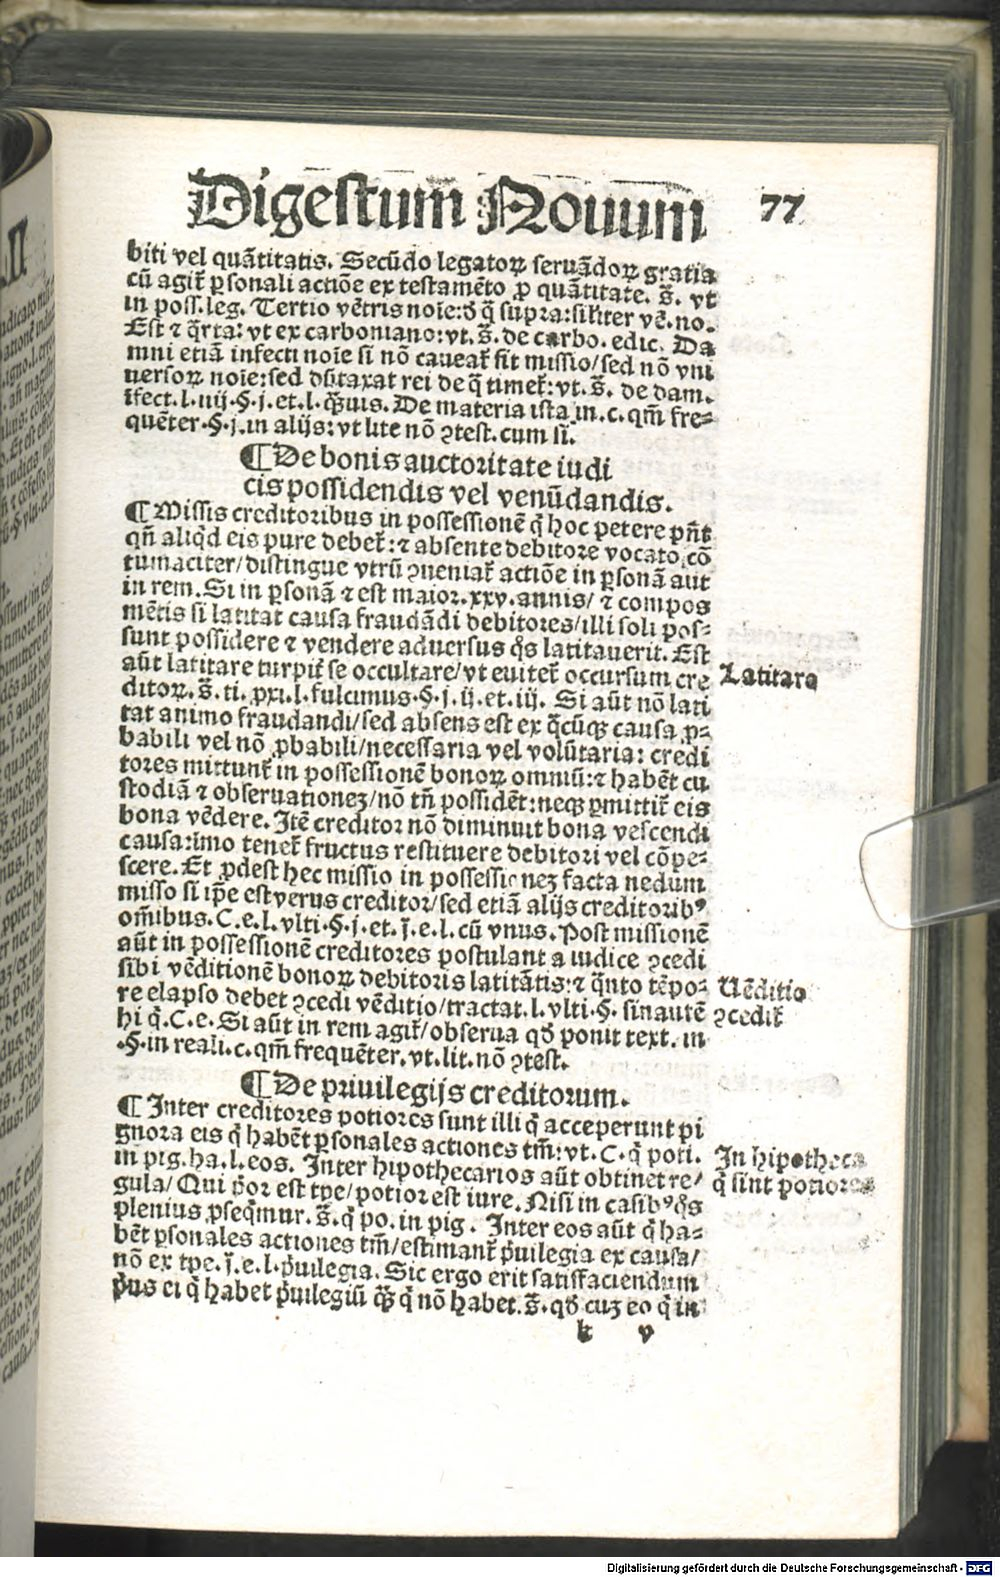 Digestum Nouum 77
biti vel quātitatis. Secūdo legatoꝝ seruādoꝝ gratia
cū agit̄ ꝑsonali actiōe ex testamēto ꝓ quātitate. s̄. vt
in poss. leg. Tertio vētris noīe: d̄ q̄ supra: siliter vē. no.
Est ⁊ q̄rta: vt ex carboniano: vt. s̄. de carbo. edic. Da
mni etiā infecti noīe si nō caueat̄ fit missio/ sed nō vni
uersoꝝ noīe: sed dūtaxat rei de q̄ timet̄: vt. s̄. de dam.
īfect. l. iiij. §. j. et. l. q̄uis. De materia ista in. c. qm̄ fre⸗
quēter. §. j. in alijs: vt lite nō ꝯtest. cum si.
¶ De bonis auctoritate iudi
cis possidendis vel venūdandis.
¶ Missis creditoribus in possessionē q̄ hoc petere pn̄t
qn̄ aliq̄d eis pure debet̄: ⁊ absente debitore vocato cō
tumaciter/ distingue vtrū ꝯueniat̄ actiōe in ꝑsonā aut
in rem. Si in ꝑsonā ⁊ est maior. xxv. annis/ ⁊ compos
mētis si latitat causa fraudādi debitores/ illi soli pos⸗
sunt possidere ⁊ vendere aduersus q̄s latitauerit. Est
aūt latitare turpit̄ se occultare/ vt euitet̄ occursum cre
ditoꝝ. s̄. ti. ꝓxi. l. fulcimus. §. j. ij. et. iij. Si aūt nō lati
tat animo fraudandi/ sed absens est ex q̄cūqꝫ causa ꝓ⸗
babili vel nō ꝓbabili/ necessaria vel volūtaria: credi
tores mittunt̄ in possessionē bonoꝝ omniū: ⁊ habēt cu
stodiā ⁊ obseruationeꝫ/ nō tn̄ possidēt: neqꝫ ꝑmittit̄ eis
bona vēdere. Itē creditor nō diminuit bona vescendi
causa: imo tenet̄ fructus restituere debitori vel cōpe⸗
scere. Et ꝓdest hec missio in possessioneꝫ facta nedum
misso si ip̄e est verus creditor/ sed etiā alijs creditoribꝰ
om̄ibus. C. e. l. vlti. §. j. et. j̄. e. l. cū vnus. Post missionē
aūt in possessionē creditores postulant a iudice ꝯcedi
sibi vēditionē bonoꝝ debitoris latitātis: ⁊ q̄nto tēpo⸗
re elapso debet ꝯcedi vēditio/ tractat. l. vlti. §. sinautē
hi q̄. C. e. Si aūt in rem agit̄/ obserua qd̄ ponit text. in
.§. in reali. c. qm̄ frequēter. vt. lit. nō ꝯtest.
¶ De priuilegijs creditorum.
¶ Inter creditores potiores sunt illi q̄ acceperunt pi
gnora eis q̄ habēt ꝑsonales actiones tm̄: vt. C. q̄ poti.
in pig. ha. l. eos. Inter hipothecarios aūt obtinet re/
gula/ Qui p̄or est tp̄e/ potior est iure. Nisi in casibꝰ q̄s
plenius ꝓseq̄mur. s̄. q̄ po. in pig. Inter eos aūt q̄ ha⸗
bēt ꝑsonales actiones tm̄/ estimant̄ p̄uilegia ex causa/
nō ex tp̄e. j̄. e. l. p̄uilegia. Sic ergo erit satisfaciendum
p̄us ei q̄ habet p̄uilegiū q̄ꝫ q̄ nō habet. s̄. qd̄ cuꝫ eo q̄ in
k v
Latitare
Uēditio
ꝯcedit̄
In hipotheca
q̄ sint potiores
Digitalisierung gefördert durch die Deutsche Forschungsgemeinschaft - DFG